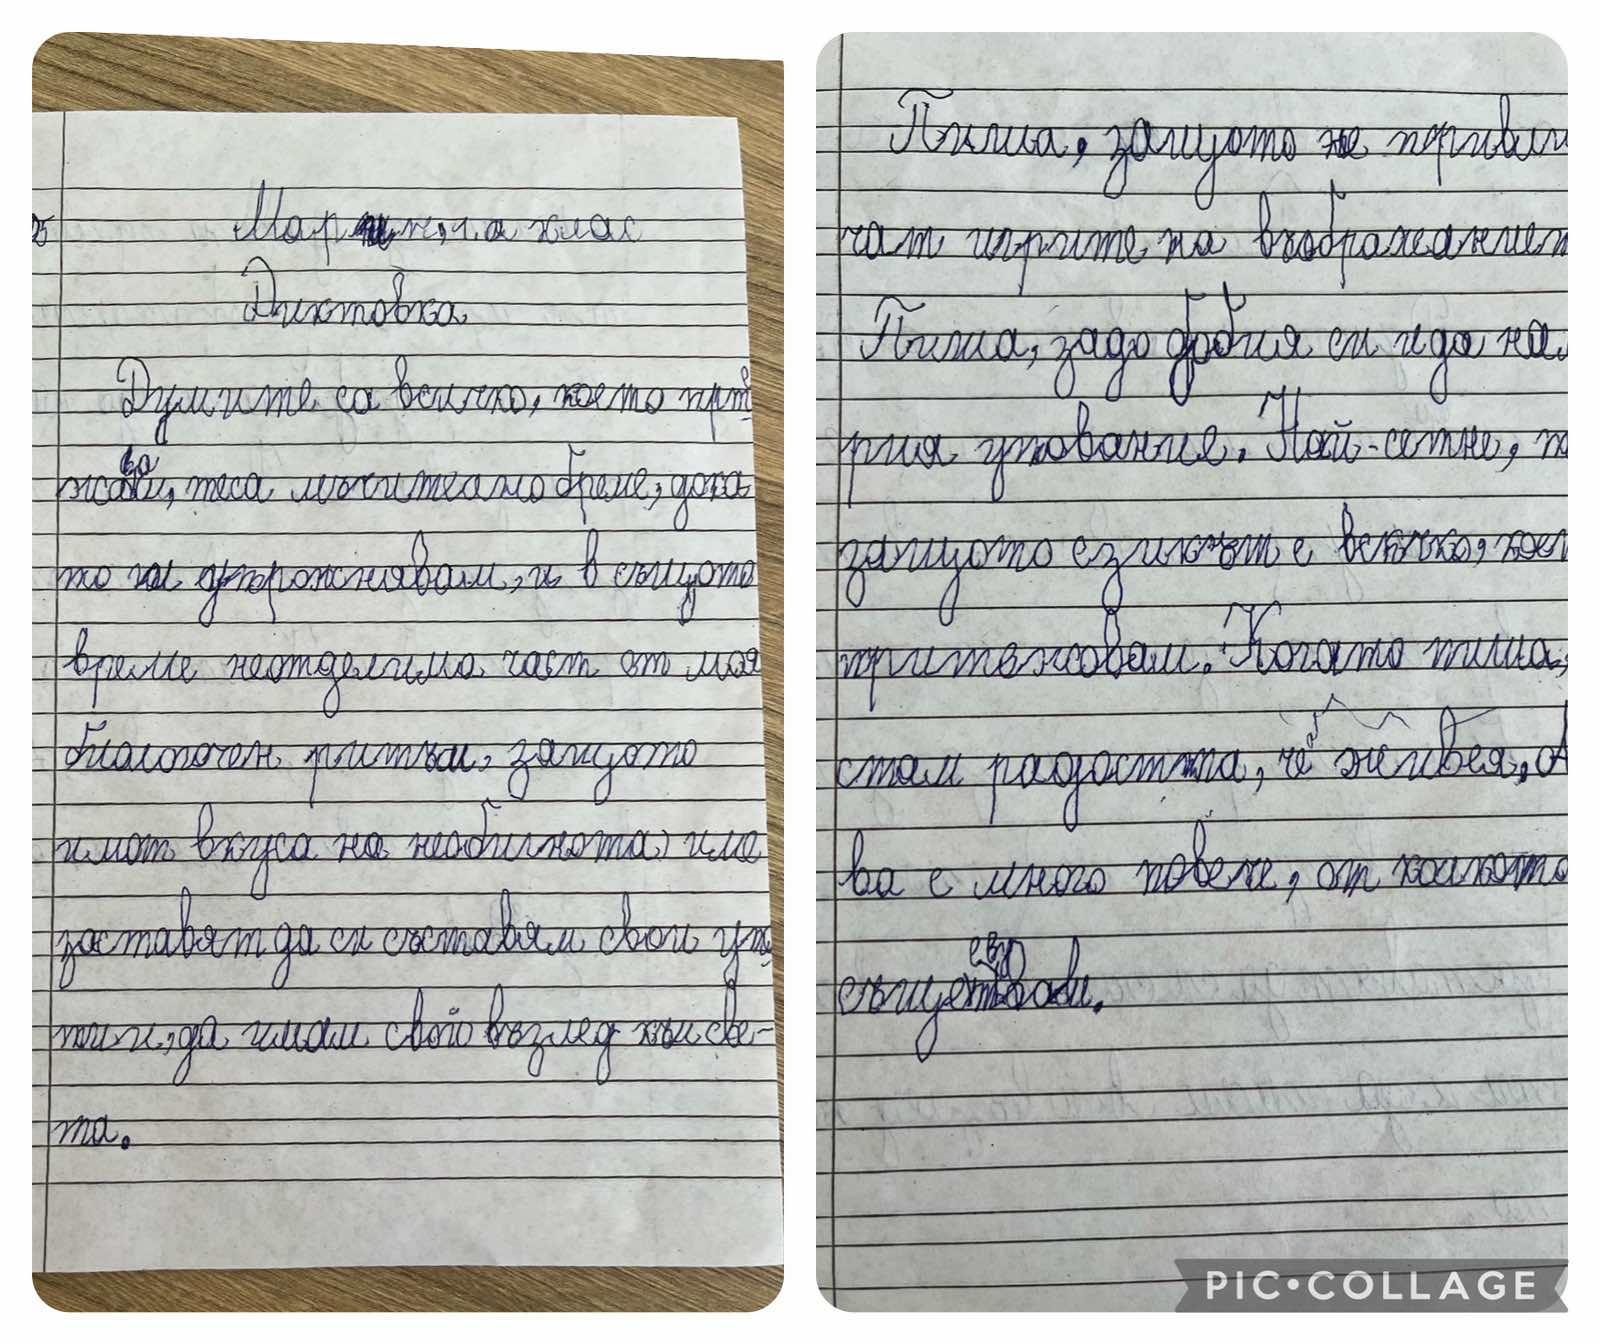 Мартин, 1. а клас
Диктовка
Думите са всичко, което прите
жавам, те са мъчително бреме, дока
то ги упражнявам, и в същото
време неотделима част от моя
биологочен ритъм, защото
имат вкуса на необичната, и ме
заставят да си съставям свои уто
пии, да имам свой възглед към све-
та.
Пиша, защото ме привли
чат игрите на въображениет
Пиша, за да добия си и да на
рия упование. Най-сетне, п
защото езикът е всичко, кое
притежавам. Когато пиша,
стам радостта, че живея, А
ва е много повече, от колкото
съществувам.
PIC•COLLAGE